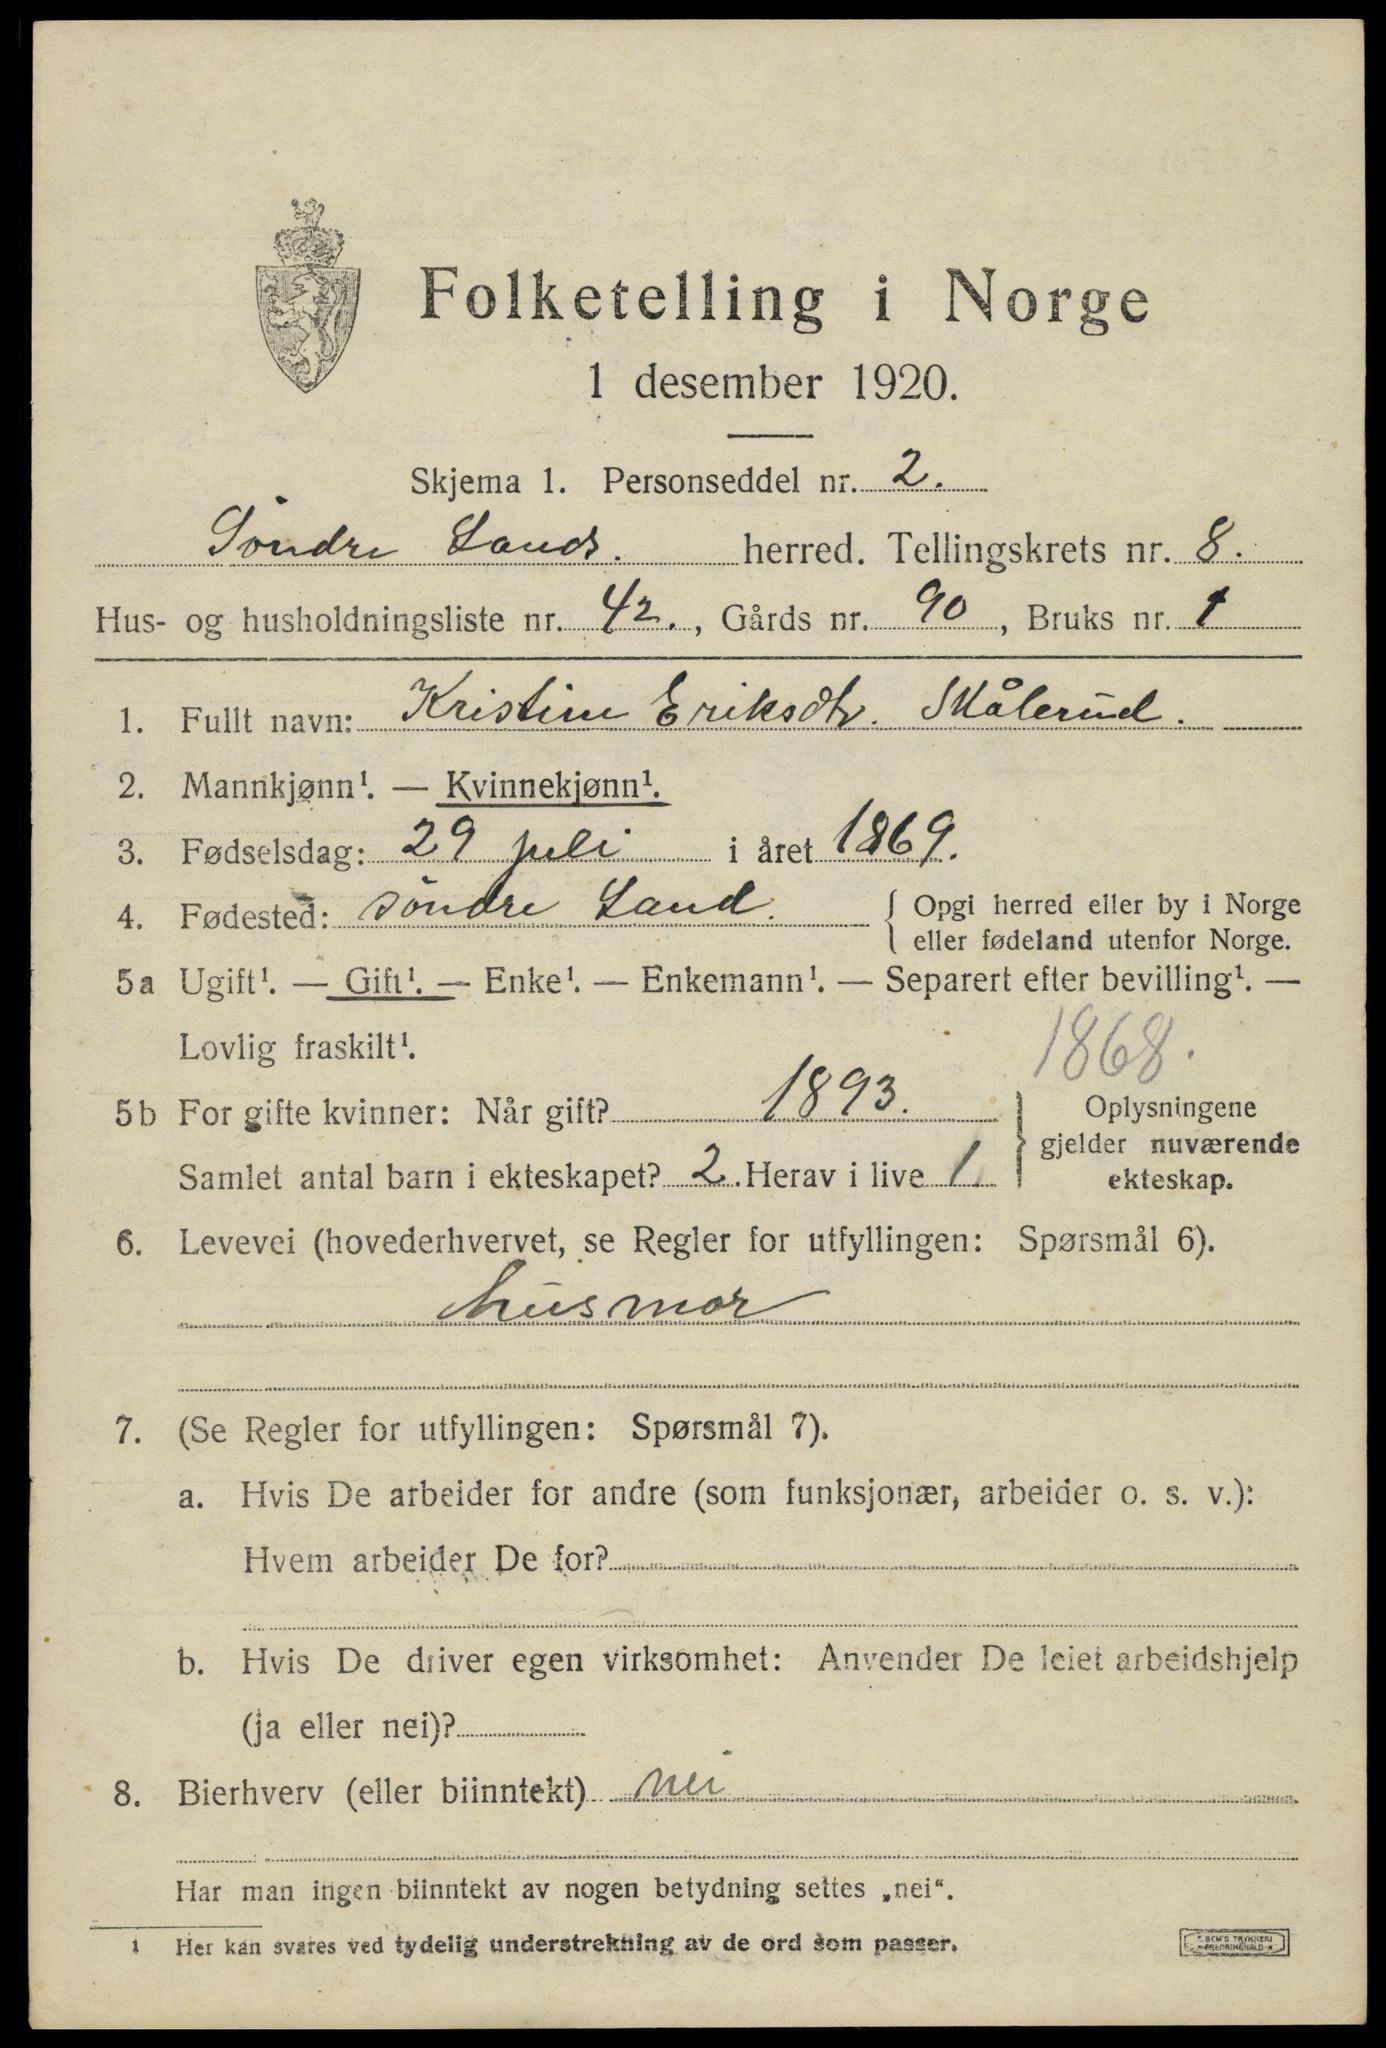 Folketelling i Norge
1 desember 1920.
Skjema 1. Personseddel nr. 2.
Söndre Lands. herred. Tellingskrets nr. 8.
Hus- og husholdningsliste nr. 42., Gårds nr. 90, Bruks nr. 1
1. Fullt navn: Kristine Eriksdtr. Målerud.
2. Mannkjønn¹. — Kvinnekjønn¹.
3. Fødselsdag: 29 juli i året 1869.
4. Fødested: söndre Land. { Opgi herred eller by i Norge
eller fødeland utenfor Norge.
5a Ugift¹. — Gift¹. — Enke¹. — Enkemann¹. — Separert efter bevilling¹. —
Lovlig fraskilt¹.
1868.
5b For gifte kvinner: Når gift? 1893.
Samlet antal barn i ekteskapet? 2. Herav i live 1.
} Oplysningene
gjelder nuværende
ekteskap.
6. Levevei (hovederhvervet, se Regler for utfyllingen: Spørsmål 6).
husmor
7. (Se Regler for utfyllingen: Spørsmål 7).
a. Hvis De arbeider for andre (som funksjonær, arbeider o. s. v.):
Hvem arbeider De for?
b. Hvis De driver egen virksomhet: Anvender De leiet arbeidshjelp
(ja eller nei)?
8. Bierhverv (eller biinntekt) nei
Har man ingen biinntekt av nogen betydning settes „nei“.
1 Her kan svares ved tydelig understrekning av de ord som passer.
SEM'S TRYKKERI
FREDRIKSHALD